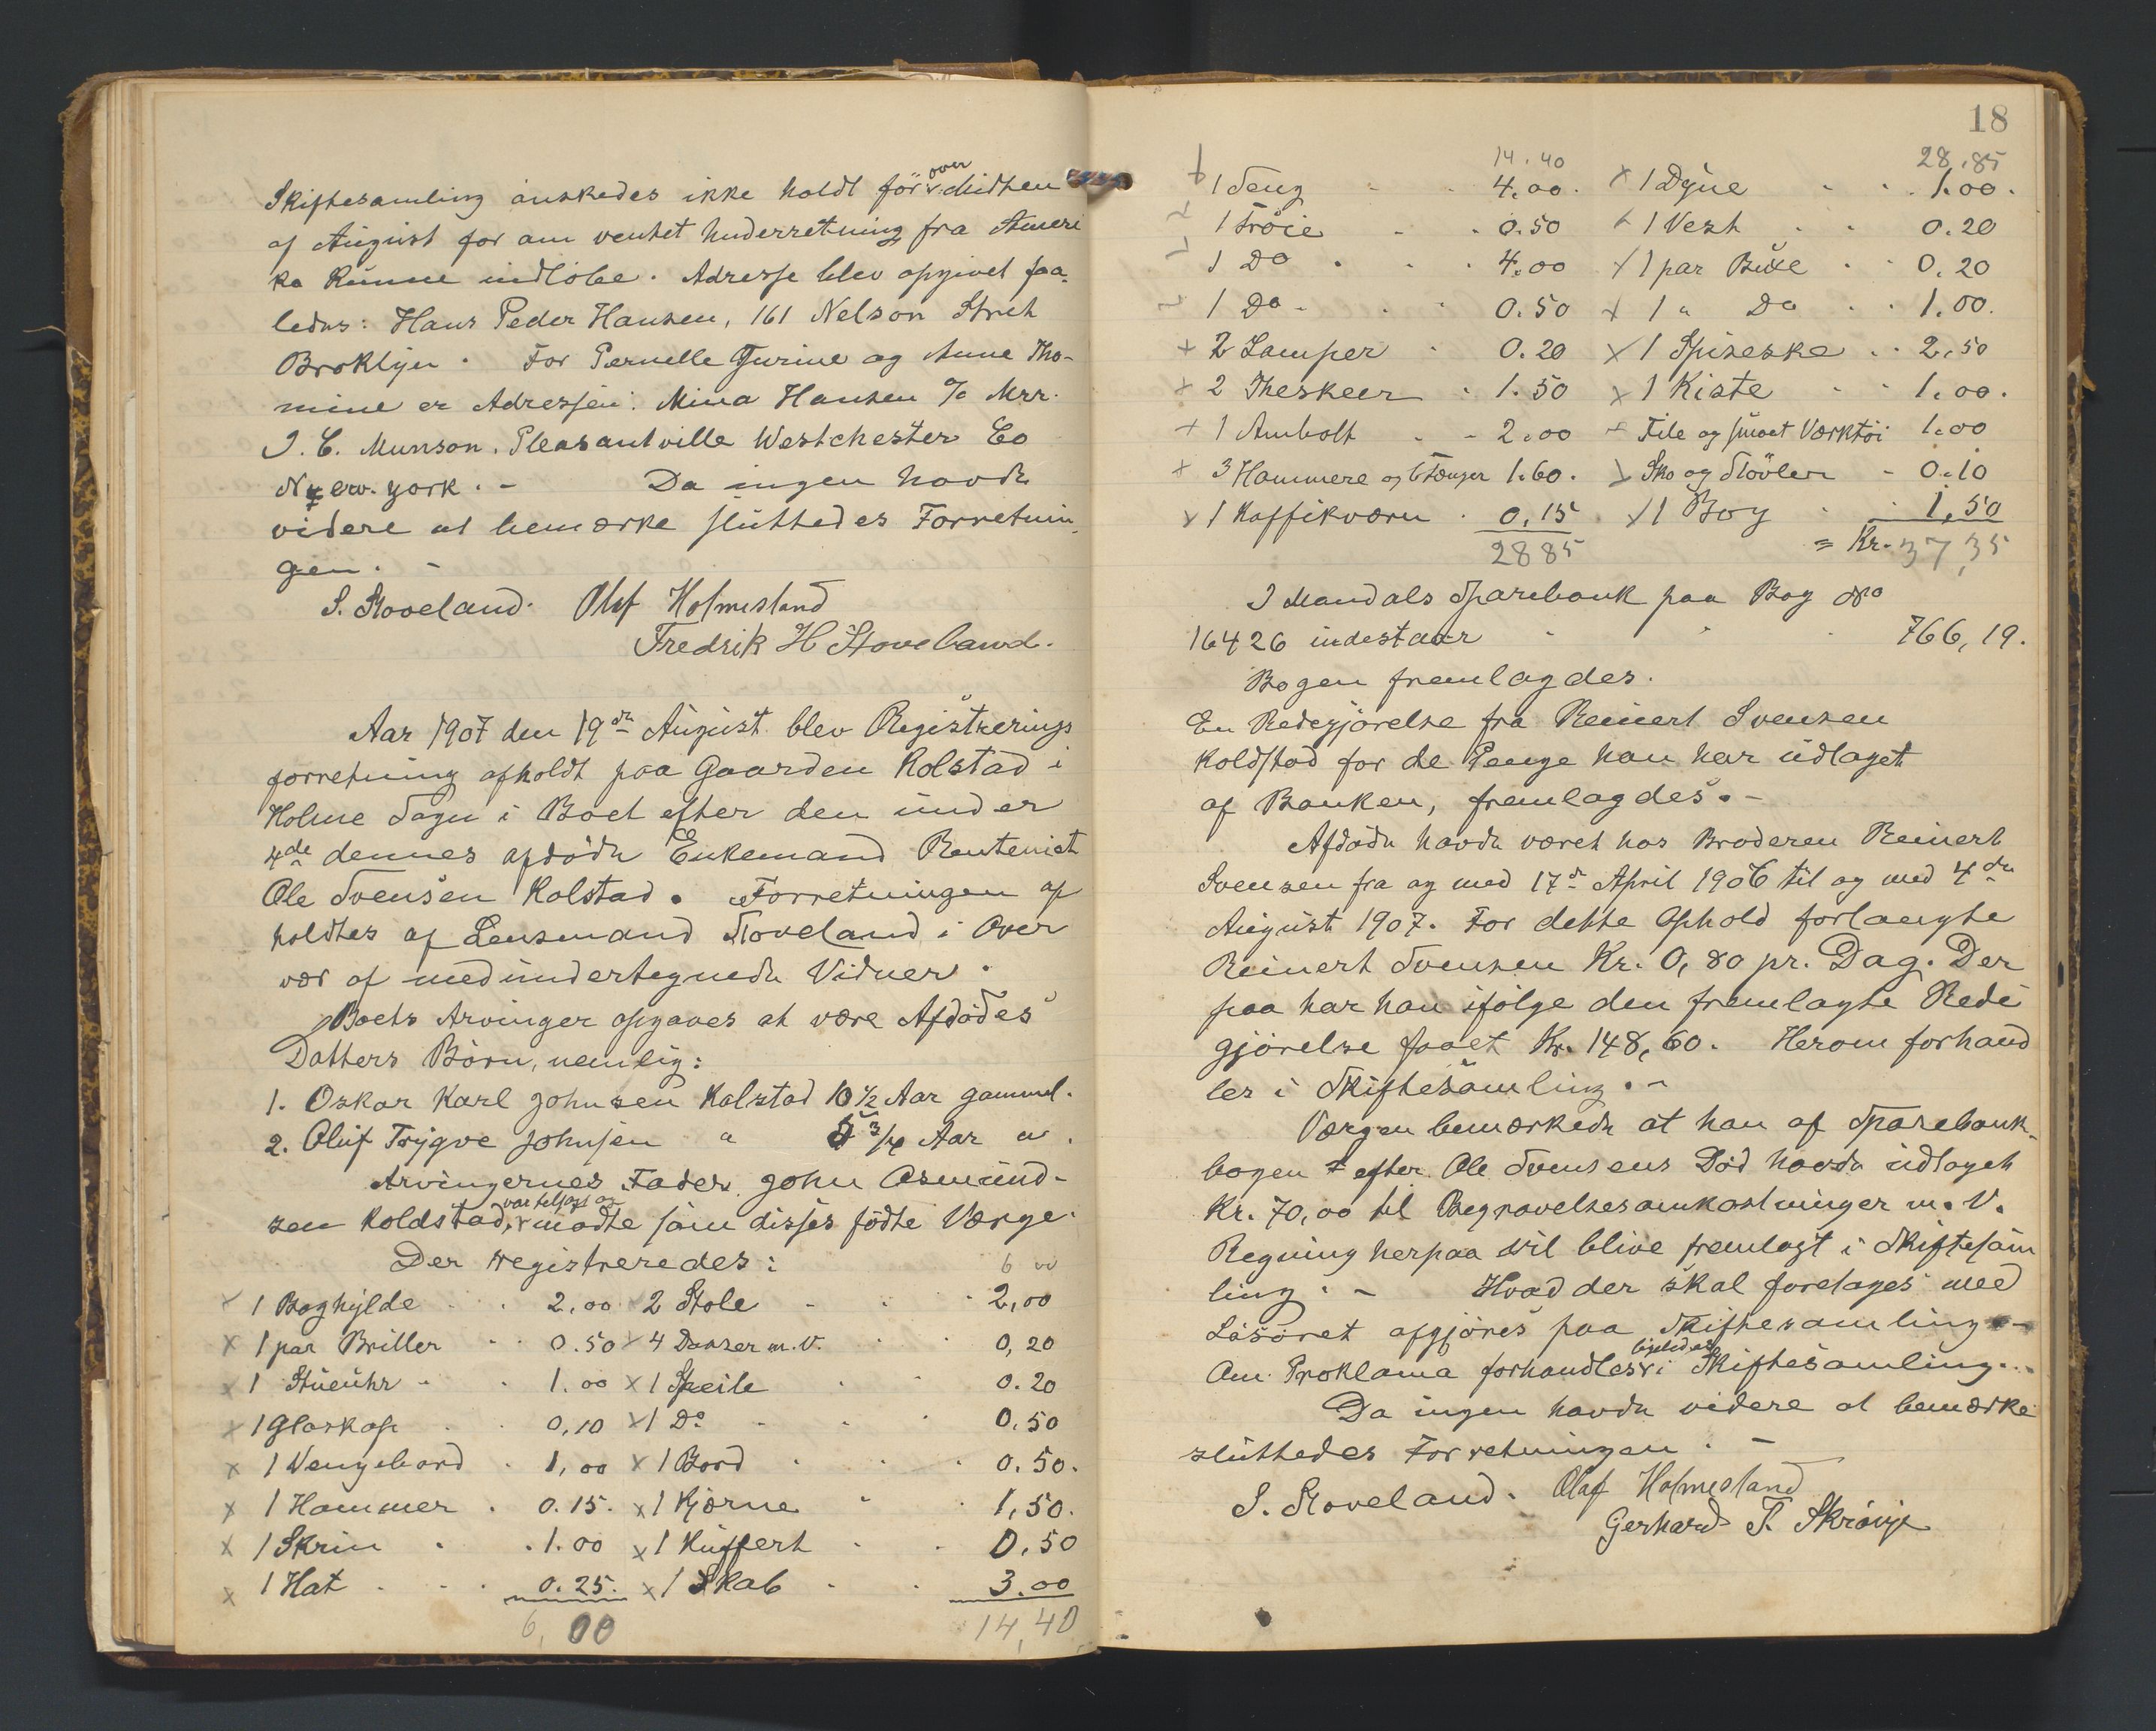 Skiftesamling önskedes ikke holdt för over Midten
af August for om ventet Underretning fra Ameri
ka kunne indlöbe. Adresse blev opgivet saa-
ledes: Hans Peder Hansen, 161 Nelson Stret
Broklyn. For Pernelle Gurine og Anne Tho-
mine er Adressen: Mina Hansen c/o Mrr.
I. C. Munson. Pleasantville Westchester Co
New. york. - Da ingen havde
videre at bemærke sluttedes Forretnin
gen. -
S. Stoveland. Olaf Holmesland
Fredrik H Stoveland.
Aar 1907 den 19de August blev Registrerings
forretning afholdt paa Gaarden Kolstad i
Holme Sogn i Boet efter den under
4de dennes afdöde Enkemand Rentenist
Ole Svensen Kolstad. Forretningen af
holdtes af Lensmand Stoveland i Over
vær af medundertegnede Vidner.
Boets Arvinger opgaves at være Afdödes
Datters Börn, nemlig:
1. Oskar Karl Johnsen Kolstad 10 1/2 Aar gammel.
2. Oluf Trygve Johnsen " 3/4 Aar " .
Arvingernes Fader John Osmund-
sen Koldstad, var tilsagt og mödte som disses födte Værge.
Der registreredes: 6 00
x 1 Boghylde . . 2,00 2 Stole . . . 2,00
x 1 par Briller . . 0.50 x 4 Daaser m.V. . . 0,20
x 1 Stueuhr . . 1.00 x 1 Speile . . 0.20
x 1 Glaskop . . 0,10 x 1 Do . . . 0.50
x 1 Vengebord . 1,00 x 1 Bord . . . 0.50.
x 1 Hammer . 0.15. x 1 Kjærne . . 1,50.
x 1 Skrin . . 1.00 x 1 Kuffert . . 0,50
x 1 Hat . . . 0.25. x 1 Skab . . 3.00
6,00 14,40
18
14.40 28,85
1 Seng . . 4.00. x 1 Dyne . . 1.00.
1 Tröie . . 0.50 x 1 Vest . . 0.20
1 Do . . . 4.00 x 1 par Buxe . . 0.20
1 Do . . . 0.50 x 1 " Do . . 1.00.
x 2 Lamper . 0.20 x 1 Spiseske . . 2,50
x 2 Theskeer . 1.50 x 1 Kiste . . 1.00.
x 1 Ambolt . . 2.00 x File og smaat Værktöi 1.00
x 3 Hammere og 6 Tænger 1.60. x Sko og Stövler - 0.10
x 1 Kaffikværn . 0,15 . x 1 Bog . . 1,50
2885 = Kr. 37,35
I Mandals Sparebank paa Bog No
16426 indestaar . . . 766,19.
Bogen fremlagdes.
En Redegjörelse fra Reinert Svensen
Koldstad for de Penge han har udtaget
af Banken, fremlagdes. -
Afdöde havde været hos Broderen Reinert
Svensen fra og med 17de April 1906 til og med 4de
August 1907. For dette Ophold forlangte
Reinert Svensen Kr. 0,80 pr. Dag. Der
paa har han ifölge den fremlagte Rede
gjörelse faaet Kr. 148,60. Herom forhand
les i Skiftesamling. -
Værgen bemærkede at han af Sparebank-
bogen efter Ole Svensens Död havde udtaget
Kr. 70,00 til Begravelsesomkostninger m. V.
Regning herpaa vil blive fremlagt i Skiftesam
ling. - Hvad der skal foretages med
Lösöret afgjöres paa Skiftesamling. -
Om Proklama forhandles ligeledes i Skiftesamling. . .
Da ingen havde videre at bemærke
sluttedes Forretningen. -
S. Stoveland. Olaf Holmesland
Gerhard T. Skröije